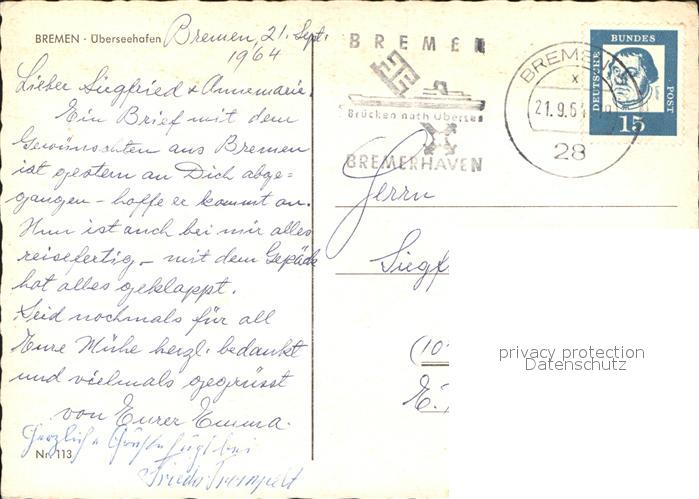 BREMEN - Überseehafen
Bremen, 21. Sept.
1964
Lieber Siegfried & Annemarie!
Ein Brief mit dem
Gewünschten aus Bremen
ist gestern an Dich abge=
gangen - hoffe er kommt an.
Nun ist auch bei mir alles
reisefertig - mit dem Gepäck
hat alles geklappt.
Seid nochmals für all
Eure Mühe herzl. bedankt
und vielmals gegrüsst
von Eurer Emma.
Herzliche Grüße fügt bei
Nr. 113
BREMEN
Brücken nach Übersee
BREMERHAVEN
BREMEN
21.9.64
28
DEUTSCHE BUNDES POST
15
Herrn
Siegf
(10
privacy protection
Datenschutz